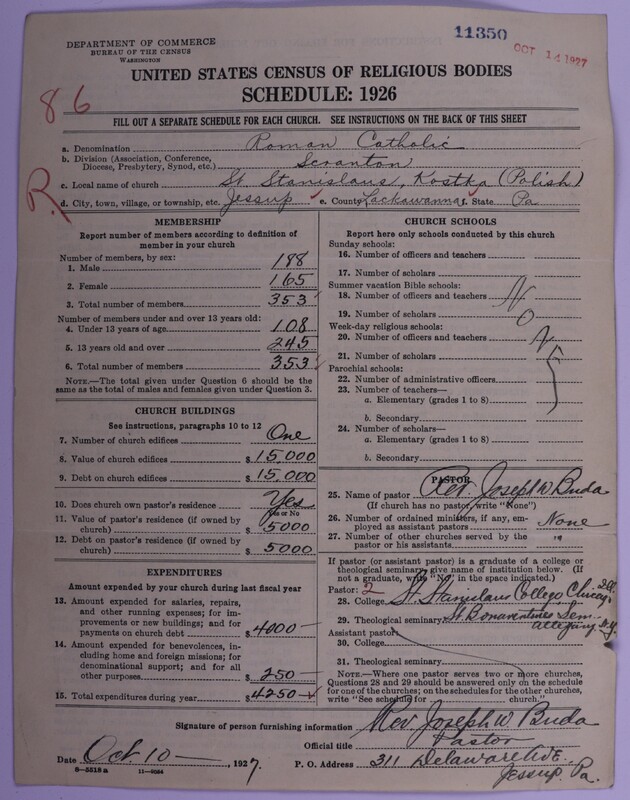 DEPARTMENT OF COMMERCE
BUREAU OF THE CENSUS
WASHINGTON
11350
OCT 14 1927
UNITED STATES CENSUS OF RELIGIOUS BODIES
SCHEDULE: 1926
86
FILL OUT A SEPARATE SCHEDULE FOR EACH CHURCH. SEE INSTRUCTIONS ON THE BACK OF THIS SHEET
R
a. Denomination Roman Catholic
b. Division (Association, Conference, Diocese, Presbytery, Synod, etc.) Scranton
c. Local name of church St. Stanislaus, Kostka (Polish)
d. City, town, village, or township, etc. Jessup e. County Lackawanna f. State Pa
MEMBERSHIP
Report number of members according to definition of
member in your church
Number of members, by sex:
1. Male 188
2. Female 165
3. Total number of members 353
Number of members under and over 13 years old:
4. Under 13 years of age 108
5. 13 years old and over 245
6. Total number of members 353
NOTE.—The total given under Question 6 should be
same as the total of males and females given under Question 3.
CHURCH BUILDINGS
See instructions, paragraphs 10 to 12
7. Number of church edifices One
8. Value of church edifices $ 15,000
9. Debt on church edifices $ 15,000
10. Does church own pastor's residence Yes
Yes or No
11. Value of pastor's residence (if owned by
church) $ 5000
12. Debt on pastor's residence (if owned by
church) $ 5000
EXPENDITURES
Amount expended by your church during last fiscal year
13. Amount expended for salaries, repairs,
and other running expenses; for im-
provements or new buildings; and for
payments on church debt $ 4000
14. Amount expended for benevolences,
including home and foreign missions; for
denominational support; and for all
other purposes $ 250
15. Total expenditures during year $ 4250
CHURCH SCHOOLS
Report here only schools conducted by this church
Sunday schools:
16. Number of officers and teachers
17. Number of scholars
Summer vacation Bible schools:
18. Number of officers and teachers N
19. Number of scholars O
Week-day religious schools:
20. Number of officers and teachers N
21. Number of scholars E
Parochial schools:
22. Number of administrative officers
23. Number of teachers—
a. Elementary (grades 1 to 8)
b. Secondary
24. Number of scholars—
a. Elementary (grades 1 to 8)
b. Secondary
PASTOR
25. Name of pastor Rev. Joseph W. Buda
(If church has no pastor, write "None")
26. Number of ordained ministers, if any, em-
ployed as assistant pastors None
27. Number of other churches served by the
pastor or his assistants "
If pastor (or assistant pastor) is a graduate of a college or
theological seminary, give name of institution below. (If
not a graduate, write "No" in the space indicated.)
Pastor: 2
28. College St. Stanislaus College Chicago Ill.
29. Theological seminary St Bonaventures Sem. Allegany N.Y.
Assistant pastor:
30. College
31. Theological seminary
NOTE.—Where one pastor serves two or more churches,
Questions 28 and 29 should be answered only on the schedule
for one of the churches; on the schedules for the other churches,
write "See schedule for church."
Signature of person furnishing information Rev. Joseph W. Buda
Official title Pastor
Date Oct. 10 , 1927. P. O. Address 311 Delaware Ave.
Jessup. Pa.
8-5518 a 11-9084